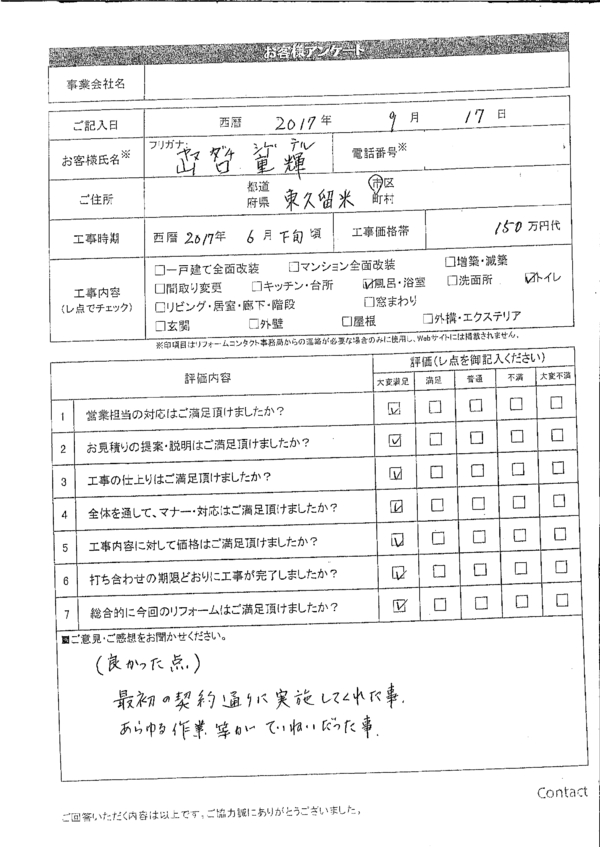 お客様アンケート
事業会社名
ご記入日 西暦 2017年 9月 17日
フリガナ: ヤマ ダテ シゲ テル
お客様氏名※ 電話番号※
ご住所 都道府県 東久留米 市区町村
工事時期 西暦 2017年 6月 下旬 頃 工事価格帯 150 万円代
工事内容
(レ点でチェック)
□一戸建て全面改装 □マンション全面改装 □増築・減築
□間取り変更 □キッチン・台所 ☑風呂・浴室 □洗面所 ☑トイレ
□リビング・居室・廊下・階段 □窓まわり
□玄関 □外壁 □屋根 □外構・エクステリア
※印項目はリフォームコンタクト事務局からの連絡が必要な場合のみに使用し、Webサイトには掲載されません。
評価内容 評価(レ点を御記入ください)
大変満足 満足 普通 不満 大変不満
1 営業担当の対応はご満足頂けましたか? ☑ □ □ □ □
2 お見積りの提案・説明はご満足頂けましたか? ☑ □ □ □ □
3 工事の仕上りはご満足頂けましたか? ☑ □ □ □ □
4 全体を通して、マナー・対応はご満足頂けましたか? ☑ □ □ □ □
5 工事内容に対して価格はご満足頂けましたか? ☑ □ □ □ □
6 打ち合わせの期限どおりに工事が完了しましたか? ☑ □ □ □ □
7 総合的に今回のリフォームはご満足頂けましたか? ☑ □ □ □ □
■ご意見・ご感想をお聞かせください。
(良かった点)
最初の契約通りに実施してくれた事.
あらゆる作業等がていねいだった事.
Contact
ご回答いただく内容は以上です。ご協力誠にありがとうございました。